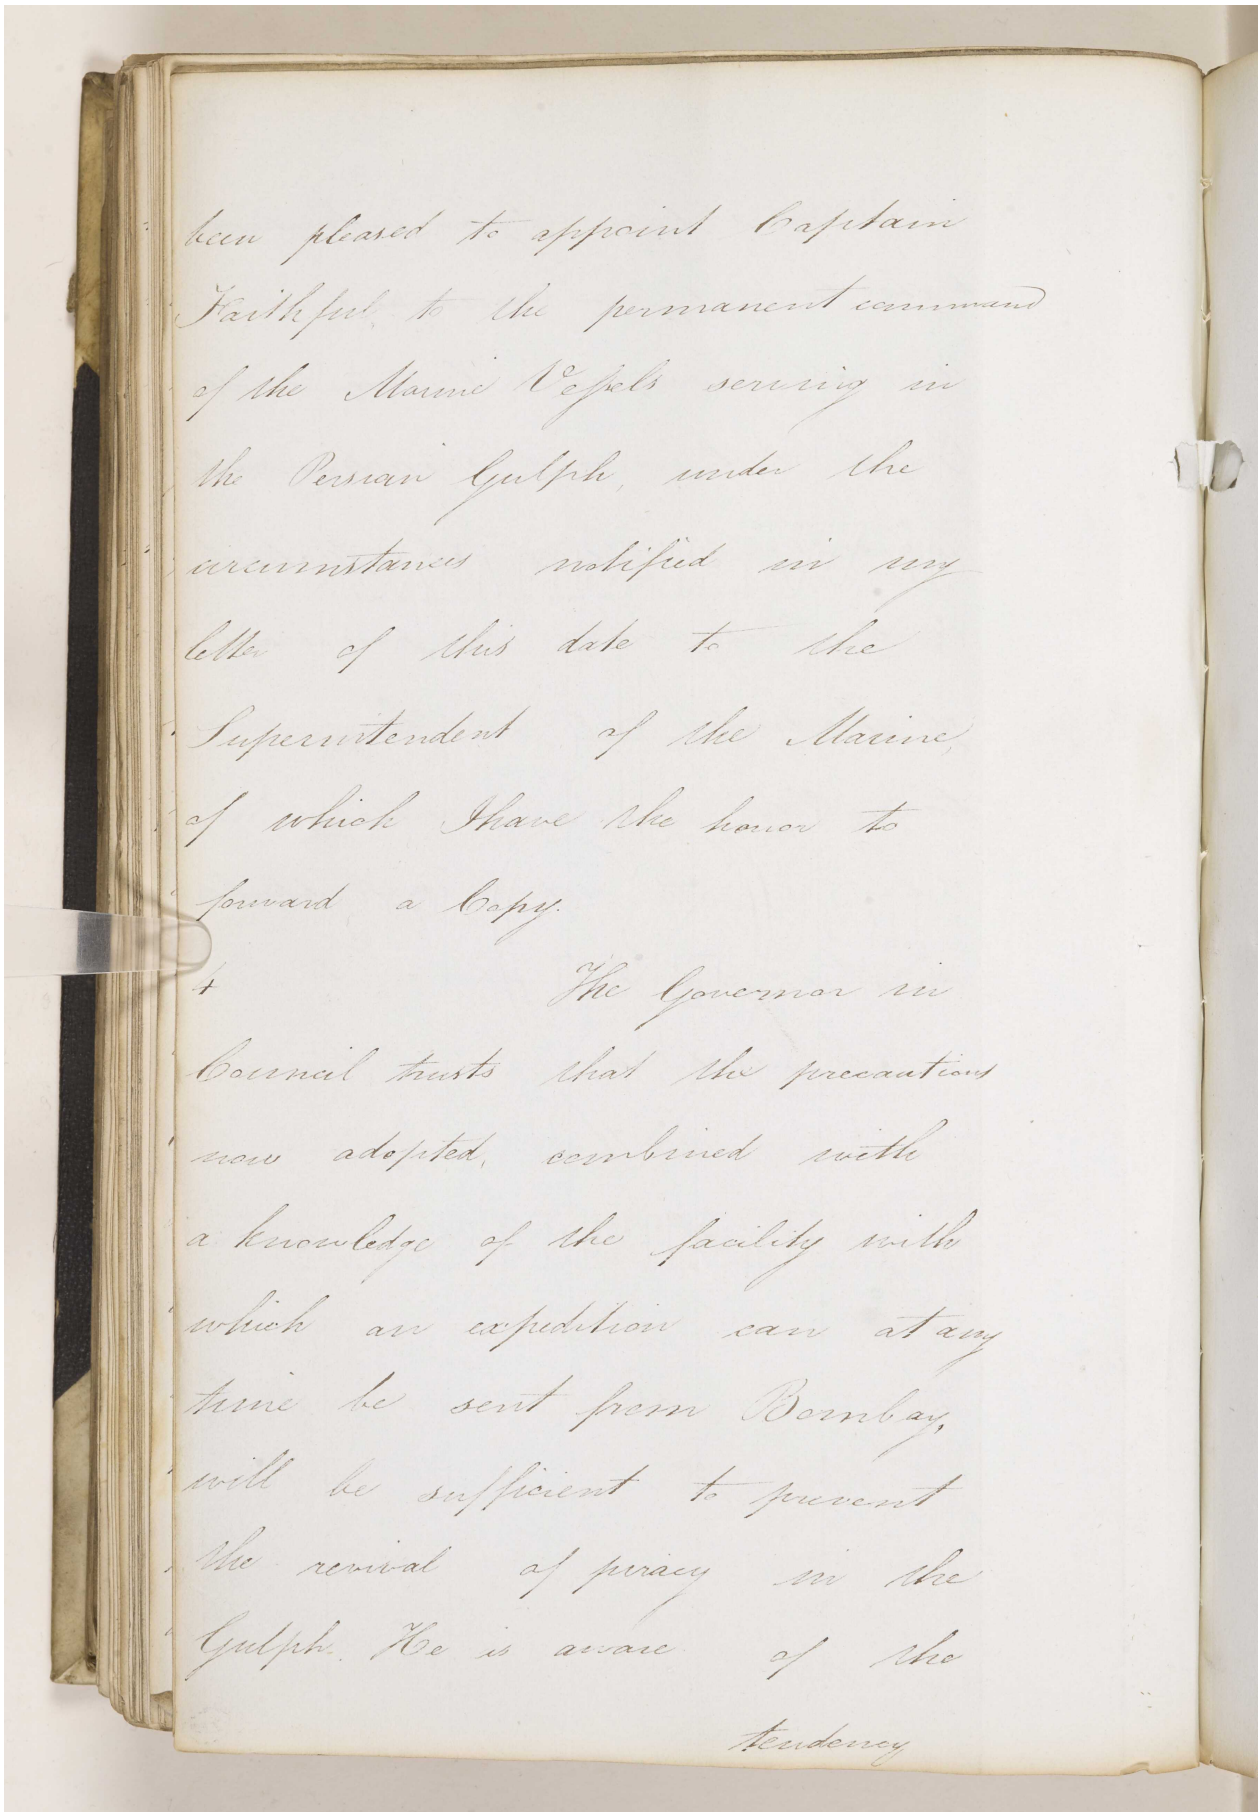 been pleased to appoint Captain
Faithful, to the permanent command
of the Marine Vessels serving in
the Persian Gulph, under the
circumstances notified in my
letter of this date to the
Superintendent of the Marine,
of which I have the honor to
forward a Copy.
4 The Governor in
Council trusts that the precautions
now adopted, combined with
a knowledge of the facility with
which an expedition can at any
time be sent from Bombay,
will be sufficient to prevent
the revival of piracy in the
Gulph. He is aware of the
tendency